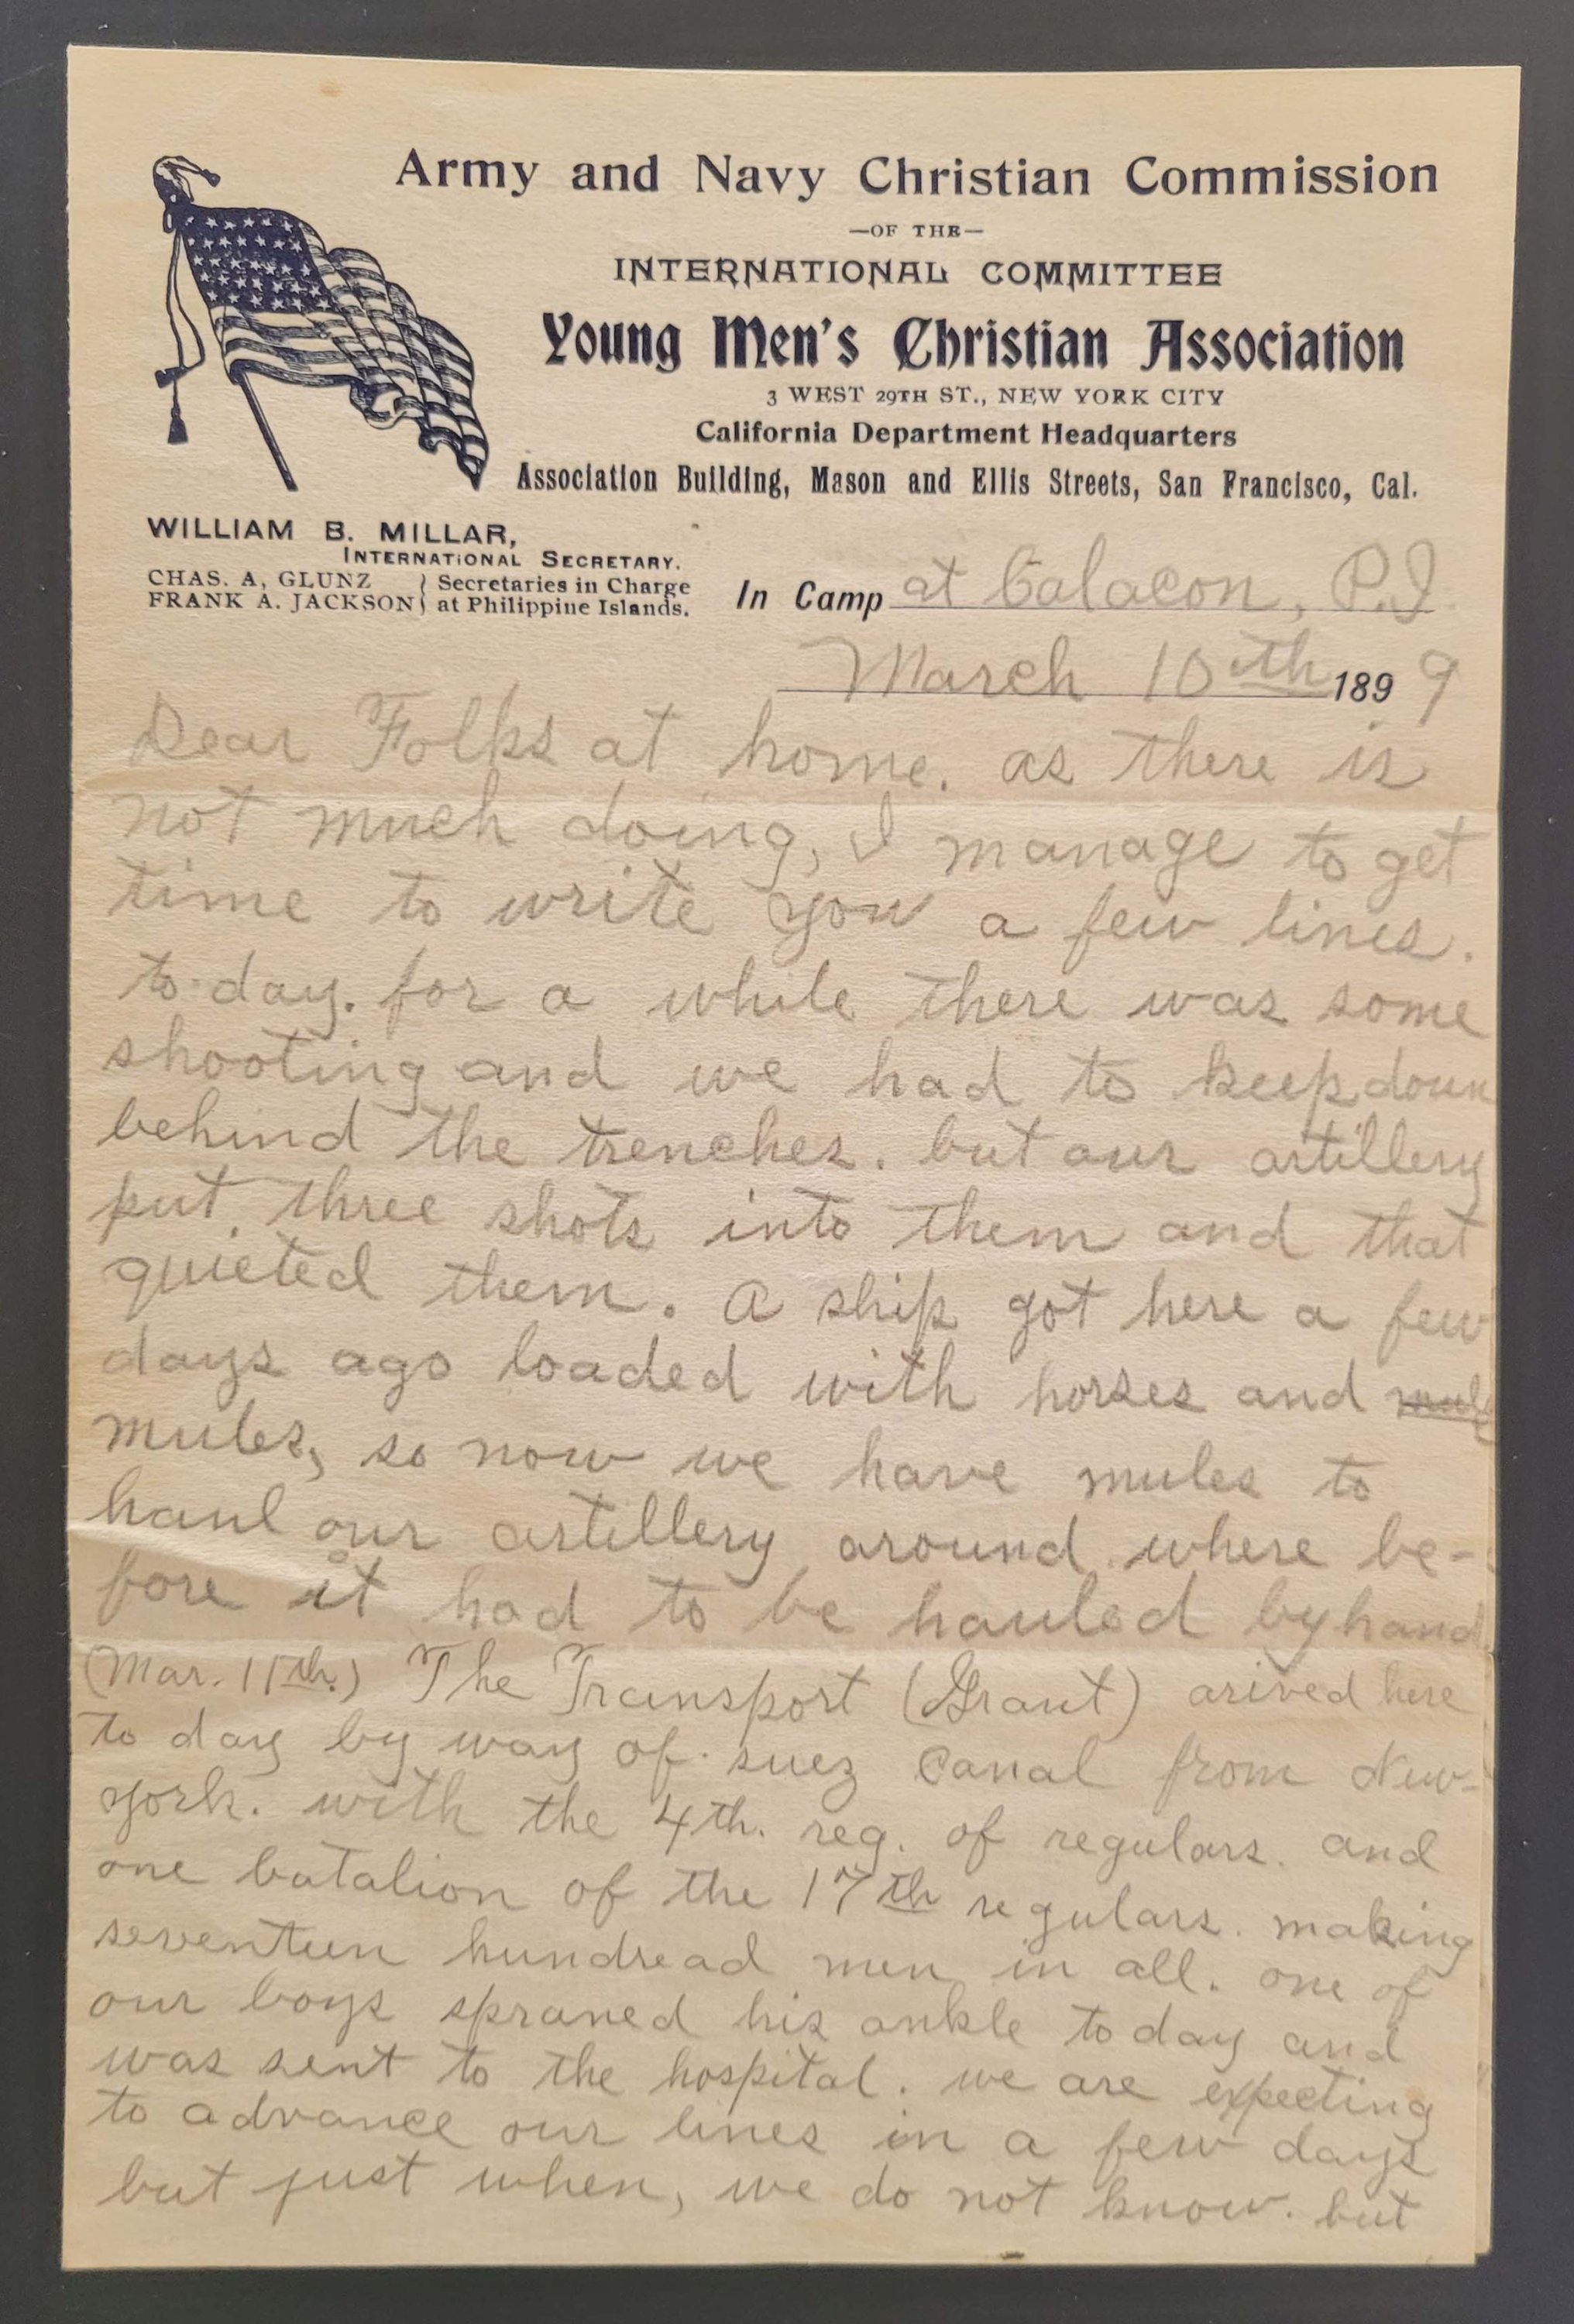 Army and Navy Christian Commission
—OF THE—
INTERNATIONAL COMMITTEE
Young Men's Christian Association
3 WEST 29TH ST., NEW YORK CITY
California Department Headquarters
Association Building, Mason and Ellis Streets, San Francisco, Cal.
WILLIAM B. MILLAR,
INTERNATIONAL SECRETARY.
CHAS. A, GLUNZ } Secretaries in Charge
FRANK A. JACKSON } at Philippine Islands.
In Camp at Calacon, P.I
March 10th 1899
Dear Folks at home. as there is
not much doing, I manage to get
time to write you a few lines.
to-day. for a while there was some
shooting and we had to keep down
behind the trenches. but our artillery
put three shots into them and that
quieted them. A ship got here a few
days ago loaded with horses and mule
mules, so now we have mules to
haul our artillery around where be-
fore it had to be hauled by hand.
(Mar. 11th.) The Transport (Grant) arived here
to day by way of suez Canal from New-
york. with the 4th. reg. of regulars. and
one batalion of the 17th regulars. making
seventeen hundread men in all. one of
our boys spraned his ankle to day and
was sent to the hospital. we are expecting
to advance our lines in a few days
but just when, we do not know. but